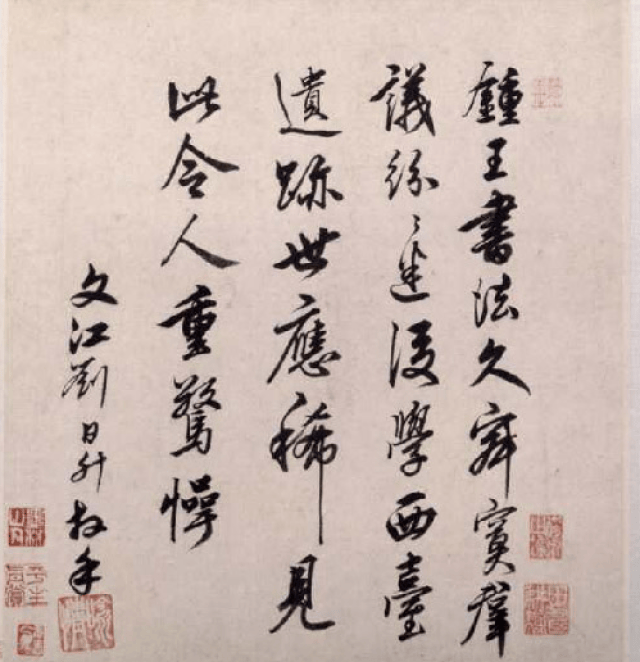 鍾王書法久寂寞群
議紛〻迷後學西臺
遺跡世應稀見
此令人重驚愕
文江劉日升